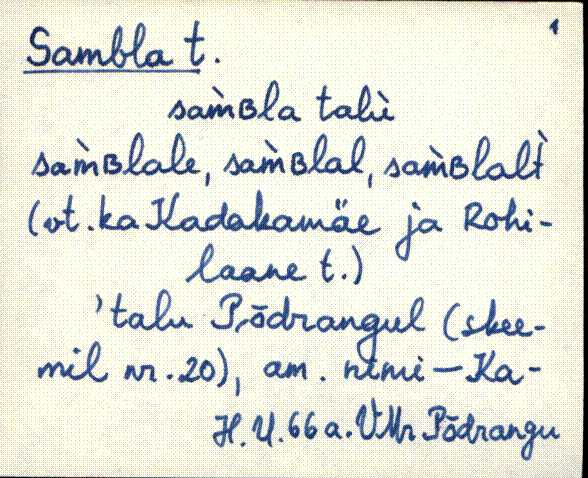 1
Sambla t.
sam̀ʙla talù
sam̀ʙlale, sam̀ʙlal, sam̀ʙlalt̀
(vt. ka Kadakamäe ja Rohi-
laane t.)
'talu Põdrangul (skee-
mil nr. 20), am. nimi – Ka-
H. U. 66 a. VMr Põdrangu